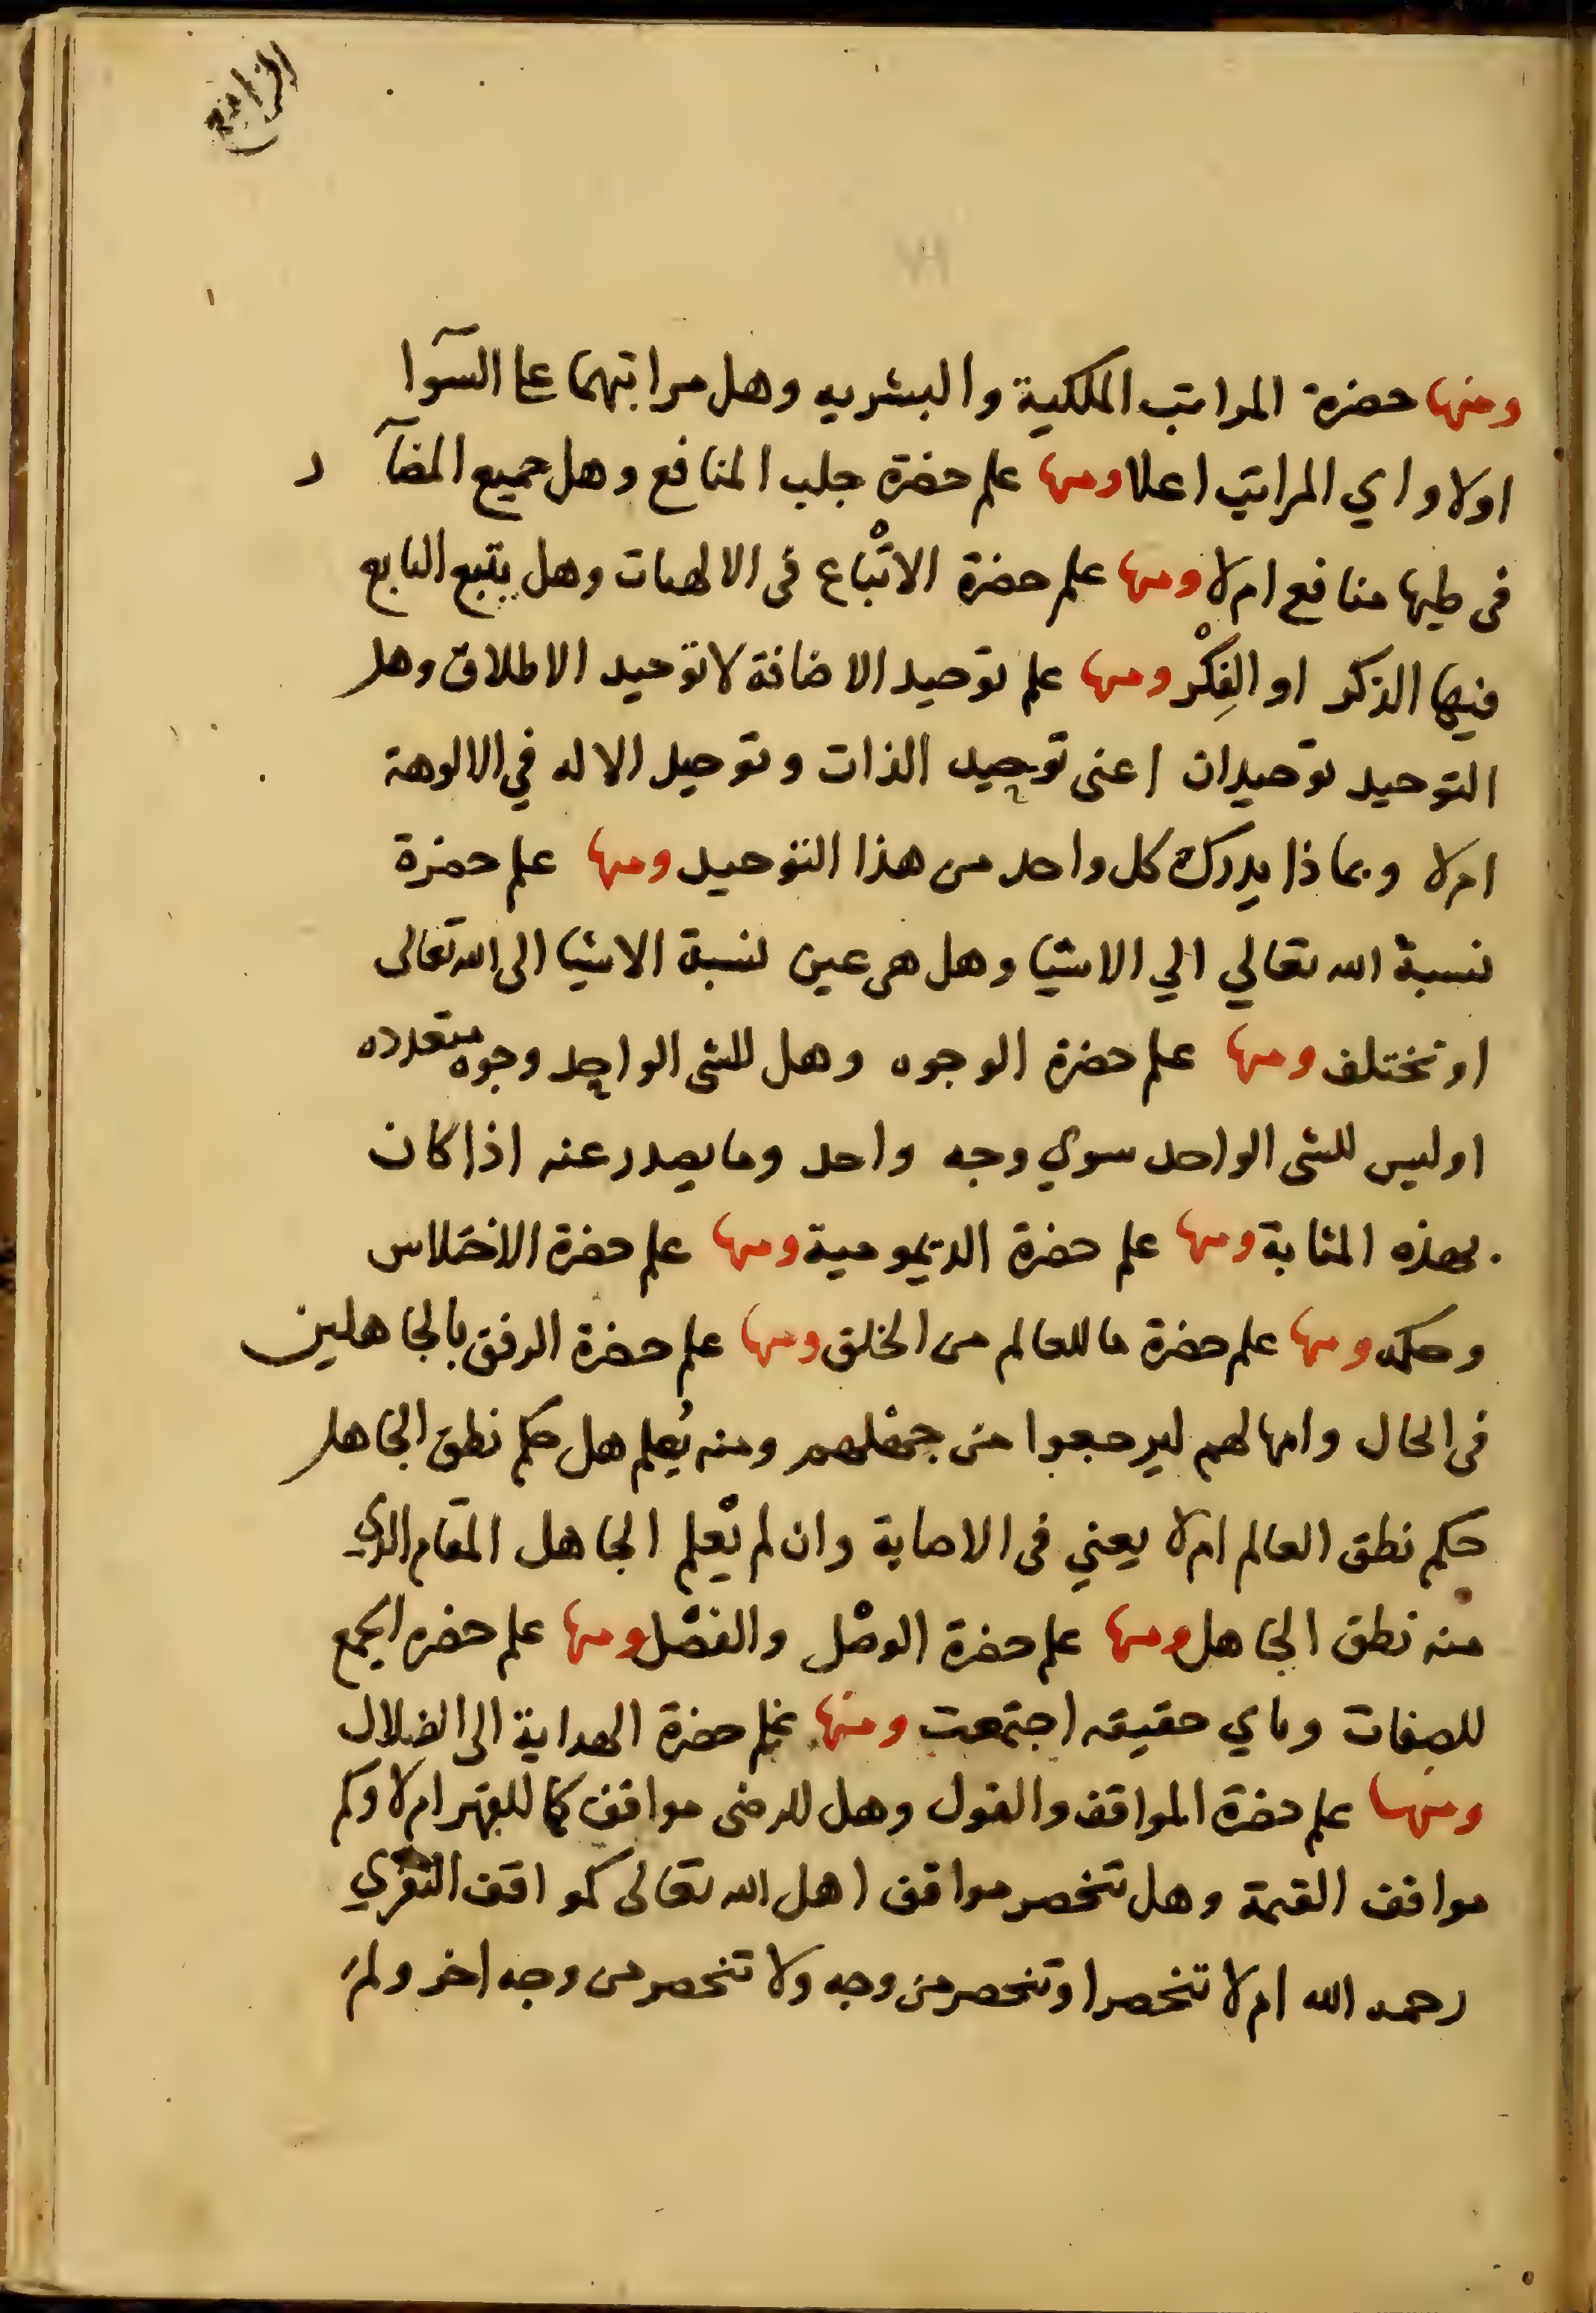 الرابع
ومنها حضرة المراتب الملكية والبشريه وهل مراتبهما على السوآ
اولا واي المراتب اعلا ومنها علم حضرة جلب المنافع وهل جميع المضآر
في طيها منافع ام لا ومنها علم حضرة الاتْباع في الالهيات وهل يتبع التابع
فيها الذكر او الفِكْر ومنها علم توحيد الاضافة لا توحيد الاطلاق وهل
التوحيد توحيدان اعنى توحيد الذات و توحيد الاله في الالوهة
ام لا وبماذا يدرك كل واحد من هذا التوحيد ومنها علم حضرة
نسبة الله تعالي الي الاشيا وهل هى عين نسبة الاشيا الى الله تعالى
او تختلف ومنها علم حضرة الوجوه وهل للشى الواحد وجوه متعدده
او ليس للشى الواحد سوي وجه واحد وما يصدر عنه اذا كان
بهذه المثابة ومنها علم حضرة الديمومية ومنها علم حضرة الاختلاس
وحكمه ومنها علم حضرة ما للعالم من الخلق ومنها علم حضرة الرفق بالجاهلين
في الحال وامهالهم ليرجعوا من جهلهم ومنه يُعلم هل حكم نطق الجاهل
حكم نطق العالم ام لا يعني في الاصابة وان لم يعلم الجاهل المقام الذي
منه نطق الجاهل ومنها علم حضرة الوصْل والفصْل ومنها علم حضره الجمع
للصفات وباي حقيقه اجتمعت ومنها علم حضرة الهداية الى الضلال
ومنها علم حضرة المواقف والقول وهل للرضى مواقف كما للقهر ام لا وكم
مواقف القيمة وهل تنحصر مواقف اهل الله تعالى كمواقف النفري
رحمه الله ام لا تنحصر او تنحصر من وجه ولا تنحصر من وجه اخر ولم